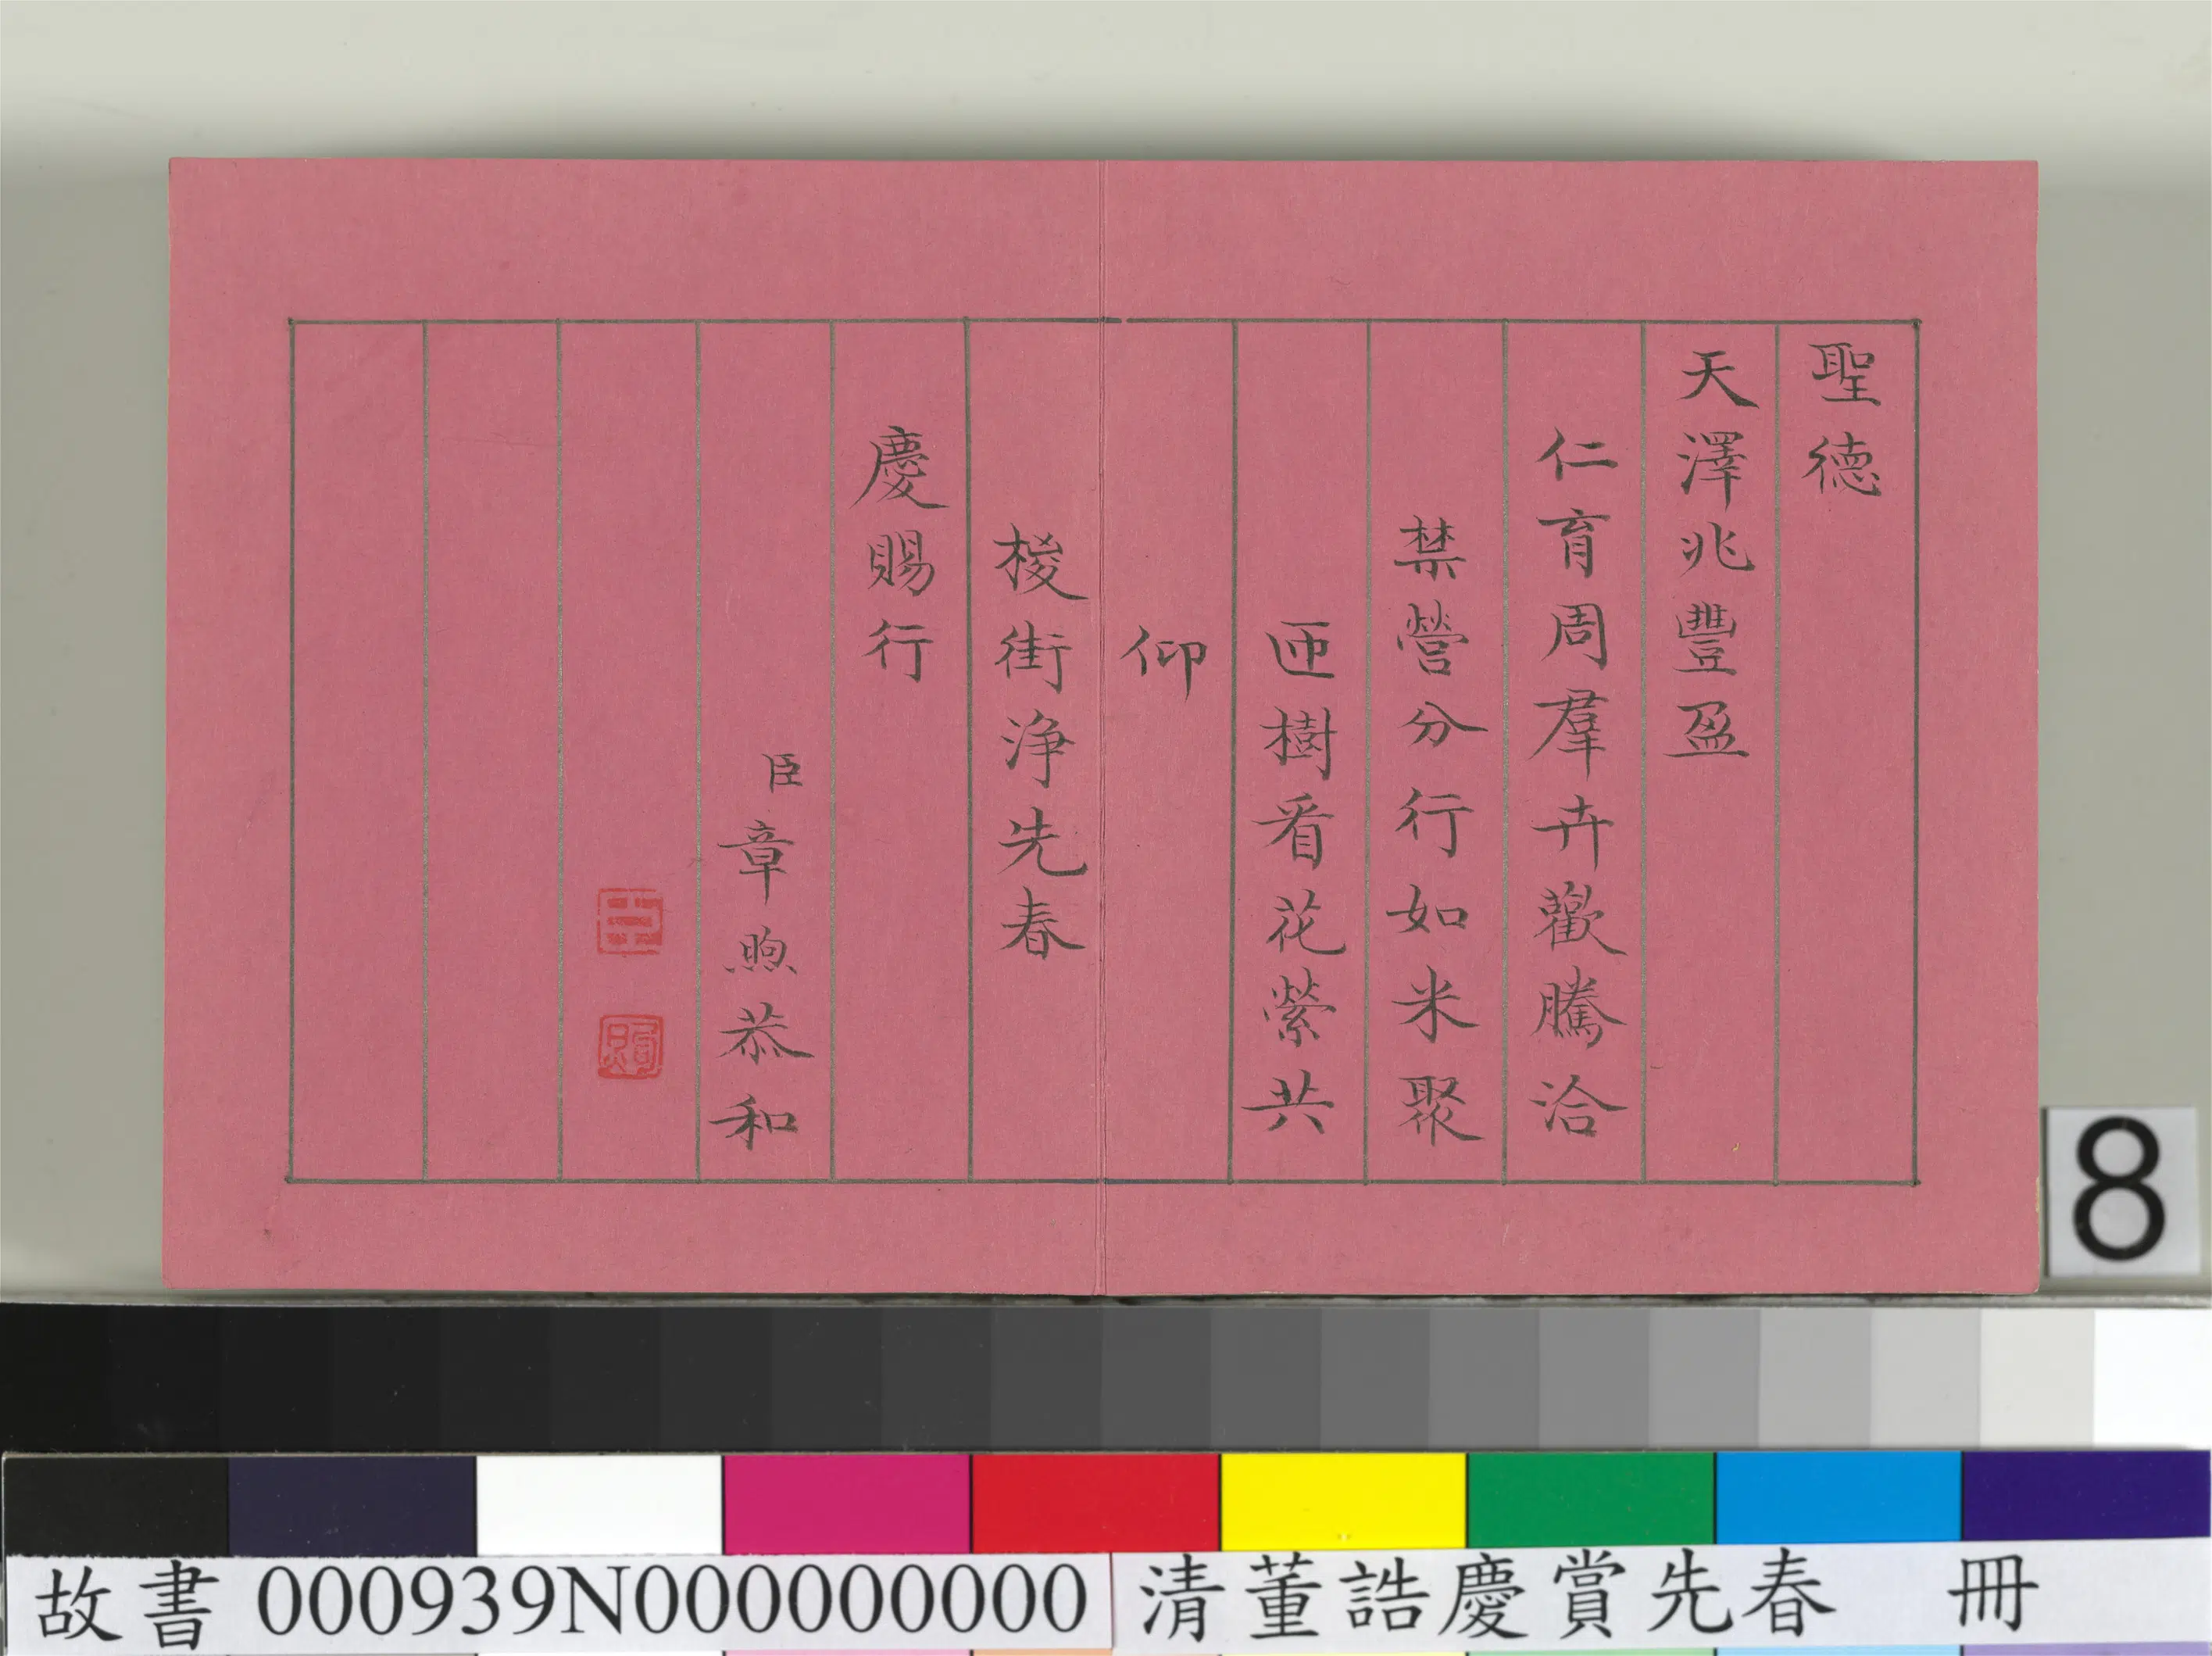 聖德
天澤兆豐盈
仁育周羣卉歡騰洽
禁營分行如米聚
匝樹看花縈共
仰
椶街浄先春
慶賜行
臣章煦恭和
臣
煦
8
故書 000939N000000000 清董誥慶賞先春 冊